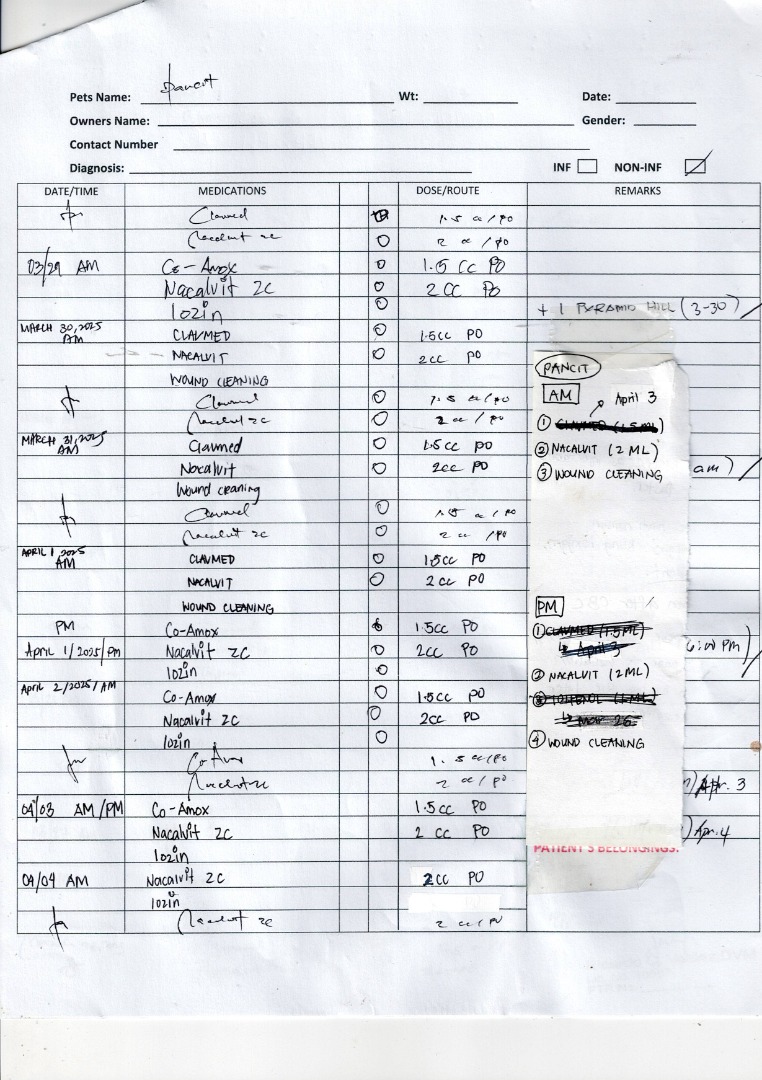 Pets Name: Pancit Wt: Date:
Owners Name: Gender:
Contact Number
Diagnosis: INF NON-INF
DATE/TIME MEDICATIONS DOSE/ROUTE REMARKS
Clavmed 1.5 cc/po
Nacalvit 2c 2 cc/po
03/29 AM Co-Amox 1.5 cc PO
Nacalvit 2C 2 cc PO
lozin + 1 PYRAMID HILL (3-30)
MARCH 30, 2025 AM CLAVMED 1.5cc PO
NACALVIT 2cc PO
WOUND CLEANING
Clavmed 1.5 cc/po
Nacalvit 2c 2 cc/po
MARCH 31, 2025 AM Clavmed 1.5cc PO
Nacalvit 2cc PO
am)
Wound cleaning
Clavmed 1.5 cc/po
Nacalvit 2c 2 cc/po
APRIL 1 2025 AM CLAVMED 1.5cc PO
NACALVIT 2cc PO
WOUND CLEANING
PM Co-Amox 1.5cc PO
April 1/2025/PM Nacalvit 2C 2cc PO
PM)
lozin
April 2/2025/AM Co-Amox 1.5cc PO
Nacalvit 2C 2cc PO
lozin
Co-Amox 1.5 cc/po
Nacalvit 2c 2 cc/po
) Apr. 3
04/03 AM/PM Co-Amox 1.5cc PO
Nacalvit 2C 2 cc PO
) Apr. 4
lozin
04/04 AM Nacalvit 2C 2cc PO
lozin
Nacalvit 2c 2 cc/po
PANCIT
AM April 3
① CLAVMED (1.5 ML)
② NACALVIT (2 ML)
③ WOUND CLEANING
PM
① CLAVMED (1.5 ML)
↳ April 3
② NACALVIT (2 ML)
↳ MAR 26
④ WOUND CLEANING
PATIENT'S BELONGINGS: